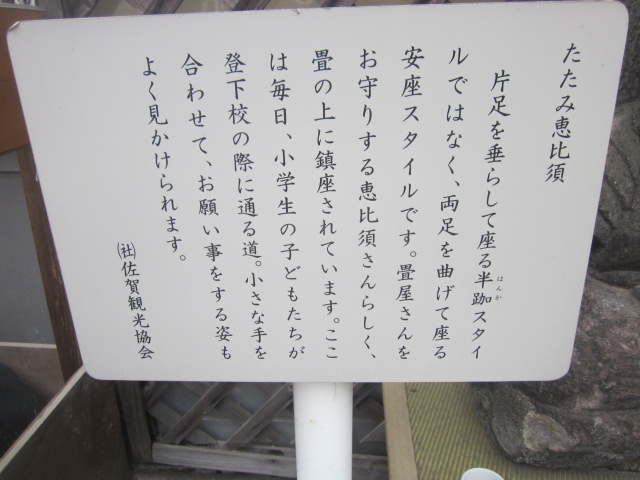 たたみ恵比須
片足を垂らして座る半跏スタイ
はんか
ルではなく、両足を曲げて座る
安座スタイルです。畳屋さんを
お守りする恵比須さんらしく、
畳の上に鎮座されています。ここ
は毎日、小学生の子どもたちが
登下校の際に通る道。小さな手を
合わせて、お願い事をする姿も
よく見かけられます。
㈳佐賀観光協会